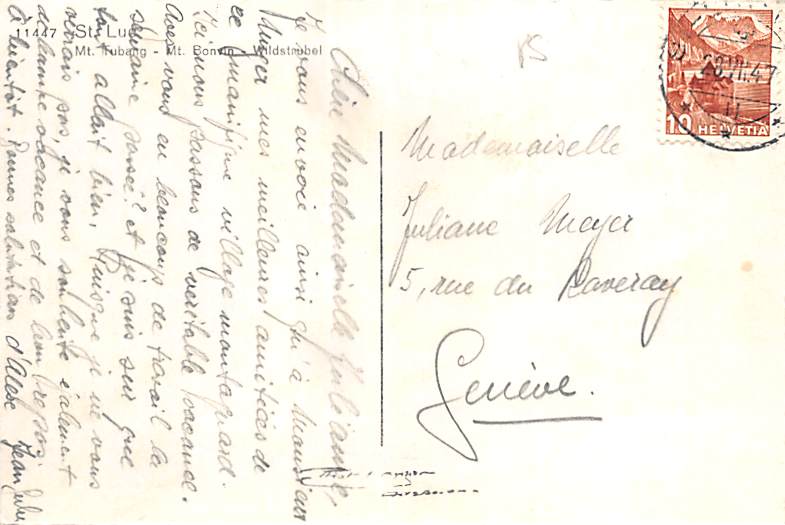 11447 St. Luc
Mt. Tubang - Mt. Bonvin - Wildstrubel
Chère Mademoiselle Juliane,
Je vous envoie ainsi qu'à Monsieur
mes meilleures amitiés de
ce magnifique village montagnard.
Ici nous passons de véritable vacance.
Avez vous eu beaucoup de travail la
semaine passée? et je suis sur que
tout allait bien, Puisque je ne vous
verrais pas, je vous souhaite également
de bonne vacance et de bon repos
à bientôt. Bonnes salutations
Mademoiselle
Juliane Meyer
5, rue du Raveray
Genève.
10 HELVETIA